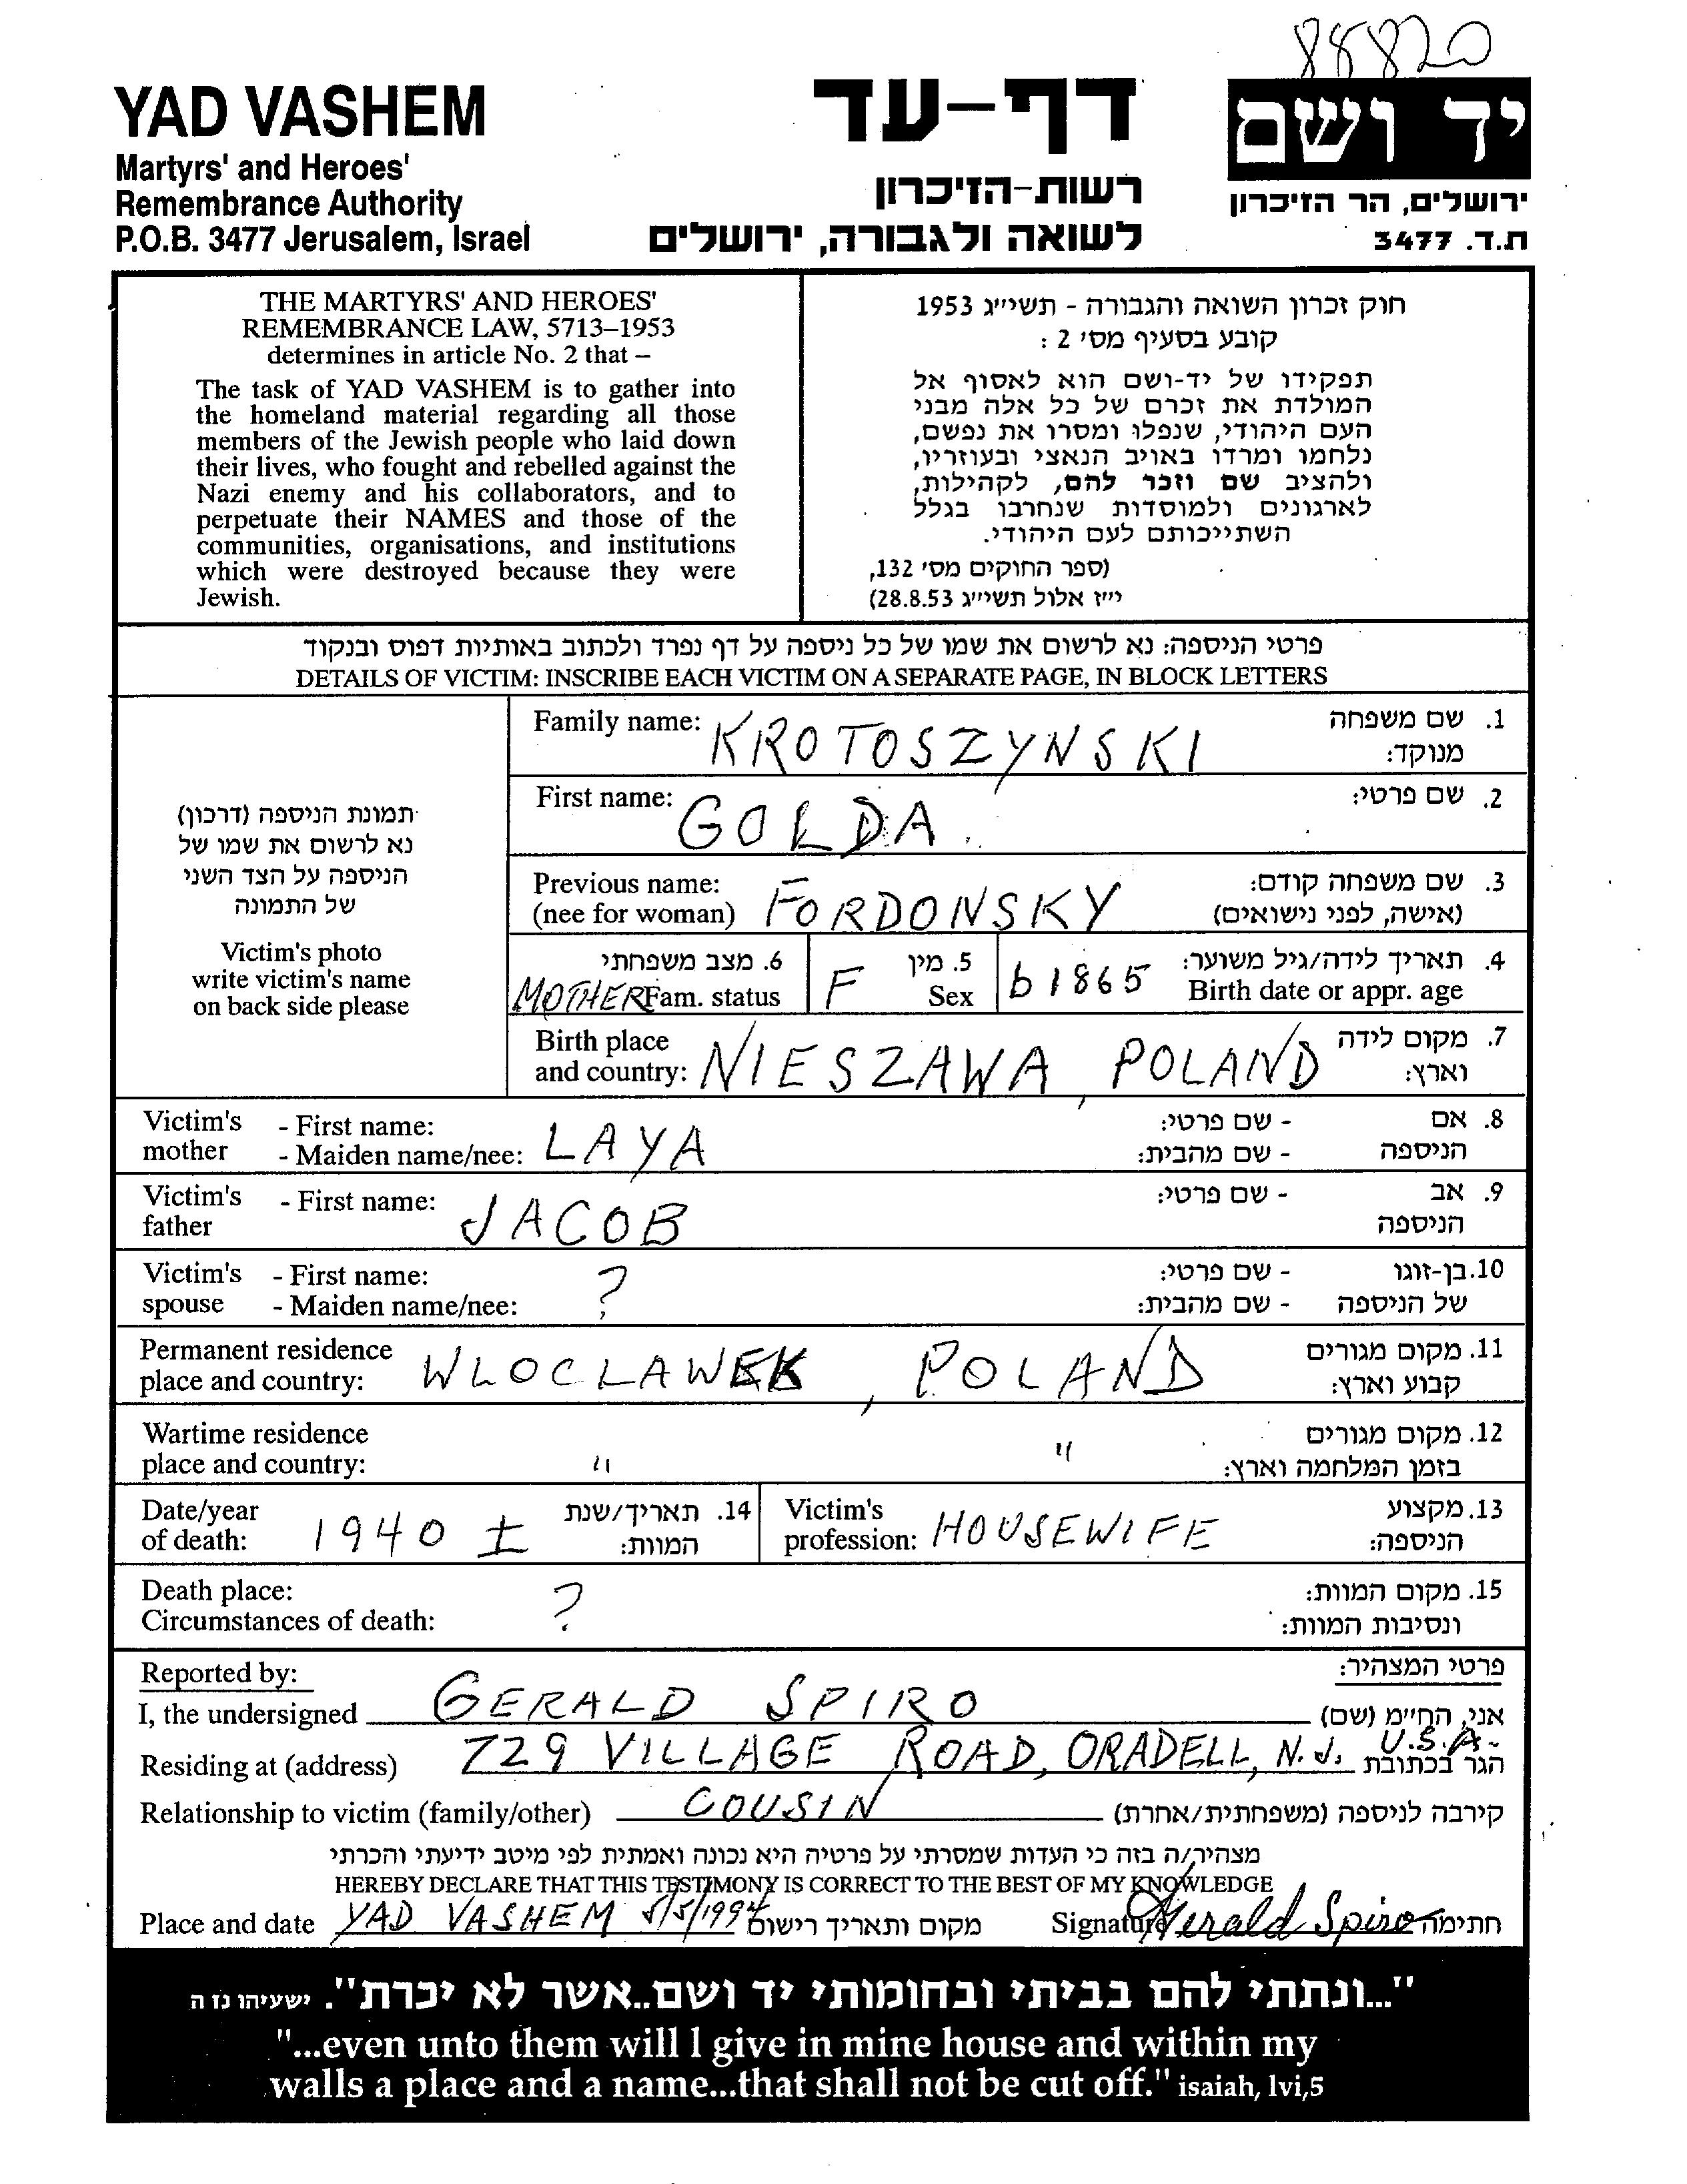 88820
YAD VASHEM
Martyrs' and Heroes'
Remembrance Authority
P.O.B. 3477 Jerusalem, Israel
דף-עד
רשות-הזיכרון
לשואה ולגבורה, ירושלים
יד ושם
ירושלים, הר הזיכרון
ת.ד. 3477
THE MARTYRS' AND HEROES'
REMEMBRANCE LAW, 5713–1953
determines in article No. 2 that –
The task of YAD VASHEM is to gather into
the homeland material regarding all those
members of the Jewish people who laid down
their lives, who fought and rebelled against the
Nazi enemy and his collaborators, and to
perpetuate their NAMES and those of the
communities, organisations, and institutions
which were destroyed because they were
Jewish.
חוק זכרון השואה והגבורה - תשי״ג 1953
קובע בסעיף מס׳ 2 :
תפקידו של יד-ושם הוא לאסוף אל
המולדת את זכרם של כל אלה מבני
העם היהודי, שנפלו ומסרו את נפשם,
נלחמו ומרדו באויב הנאצי ובעוזריו,
ולהציב שם וזכר להם, לקהילות,
לארגונים ולמוסדות שנחרבו בגלל
השתייכותם לעם היהודי.
(ספר החוקים מס׳ 132,
י״ז אלול תשי״ג 28.8.53)
פרטי הניספה: נא לרשום את שמו של כל ניספה על דף נפרד ולכתוב באותיות דפוס ובנקוד
DETAILS OF VICTIM: INSCRIBE EACH VICTIM ON A SEPARATE PAGE, IN BLOCK LETTERS
תמונת הניספה (דרכון)
נא לרשום את שמו של
הניספה על הצד השני
של התמונה
Victim's photo
write victim's name
on back side please
Family name: KROTOSZYNSKI 1. שם משפחה
מנוקד:
First name: GOLDA 2. שם פרטי:
Previous name: 3. שם משפחה קודם:
(nee for woman) FORDONSKY (אישה, לפני נישואים)
6. מצב משפחתי 5. מין 4. תאריך לידה/גיל משוער:
MOTHER Fam. status F Sex b 1865 Birth date or appr. age
Birth place 7. מקום לידה
and country: NIESZAWA, POLAND וארץ:
Victim's - First name: - שם פרטי: 8. אם
mother - Maiden name/nee: LAYA - שם מהבית: הניספה
Victim's - First name: JACOB - שם פרטי: 9. אב
father הניספה
Victim's - First name: ? - שם פרטי: 10. בן-זוגו
spouse - Maiden name/nee: - שם מהבית: של הניספה
Permanent residence 11. מקום מגורים
place and country: WLOCLAWEK, POLAND קבוע וארץ:
Wartime residence 12. מקום מגורים
place and country: " " בזמן המלחמה וארץ:
Date/year 14. תאריך/שנת Victim's 13. מקצוע
of death: 1940 ± המוות: profession: HOUSEWIFE הניספה:
Death place: ? 15. מקום המוות:
Circumstances of death: ונסיבות המוות:
Reported by: פרטי המצהיר:
I, the undersigned GERALD SPIRO אני, החי״מ (שם)
Residing at (address) 729 VILLAGE ROAD, ORADELL, N.J. U.S.A. הגר בכתובת
Relationship to victim (family/other) COUSIN קירבה לניספה (משפחתית/אחרת)
מצהיר/ה בזה כי העדות שמסרתי על פרטיה היא נכונה ואמתית לפי מיטב ידיעתי והכרתי
HEREBY DECLARE THAT THIS TESTIMONY IS CORRECT TO THE BEST OF MY KNOWLEDGE
Place and date YAD VASHEM 5/5/1994 מקום ותאריך רישום Signature Gerald Spiro חתימה
"...ונתתי להם בביתי ובחומותי יד ושם..אשר לא יכרת". ישעיהו נז ה
"...even unto them will I give in mine house and within my
walls a place and a name...that shall not be cut off." isaiah, lvi,5